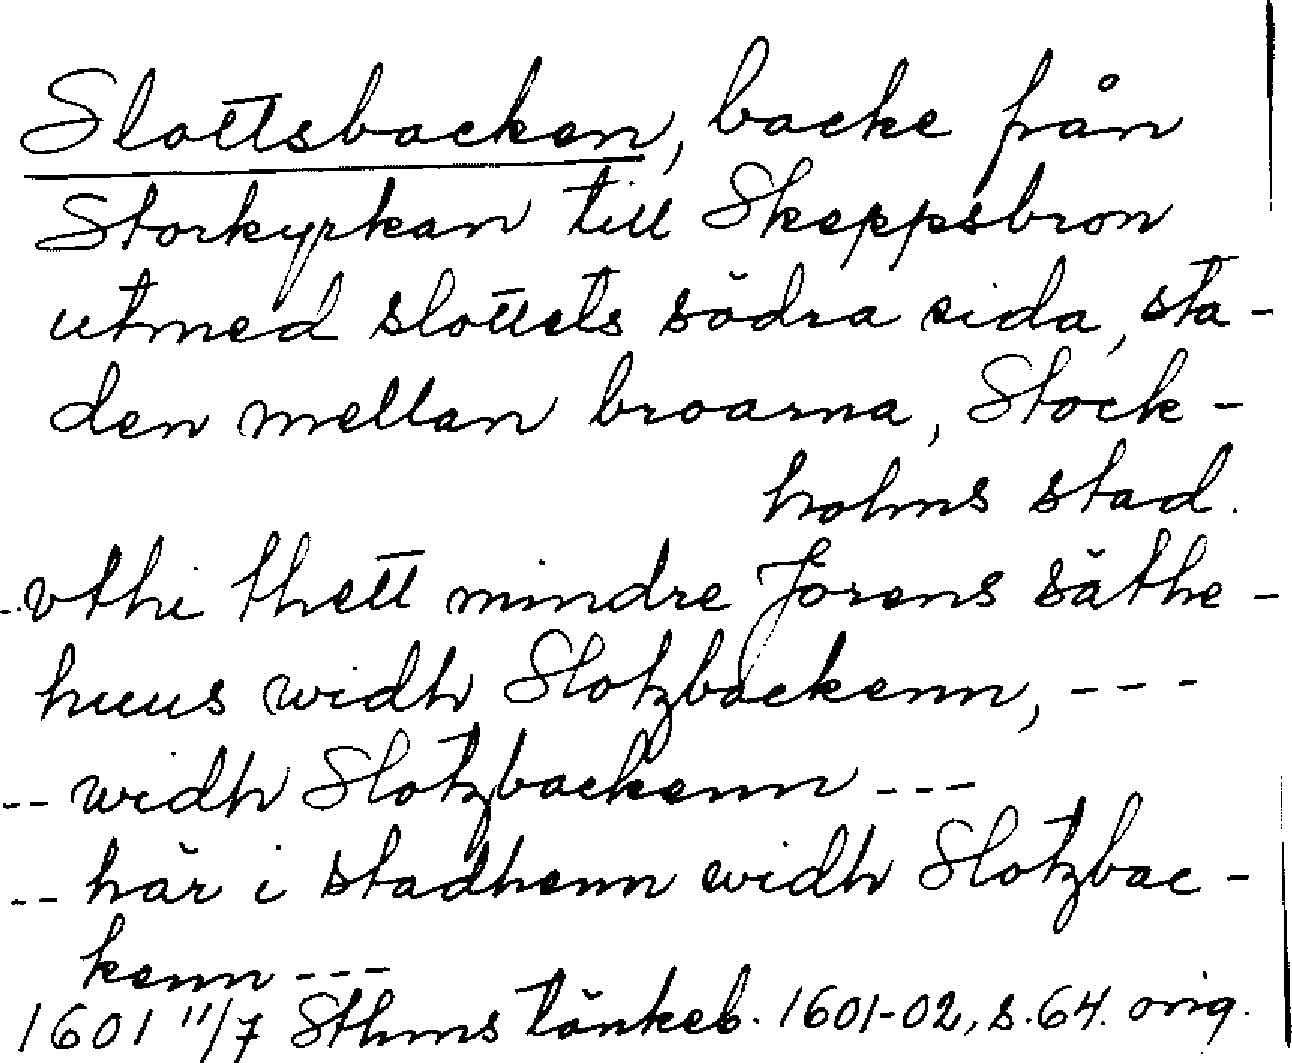 Slottsbacken, backe från
Storkyrkan till Skeppsbron
utmed slottets södra sida, sta-
den mellan broarna, Stock-
holms stad.
..vthi thett mindre Jörens säthe-
huus widh Slotzbackenn, ---
-- widh Slotzbackenn ---
-- här i stadhenn widh Slotzbac-
kenn ---
1601 11/7 Sthms tänkeb. 1601-02, s. 64. orig.